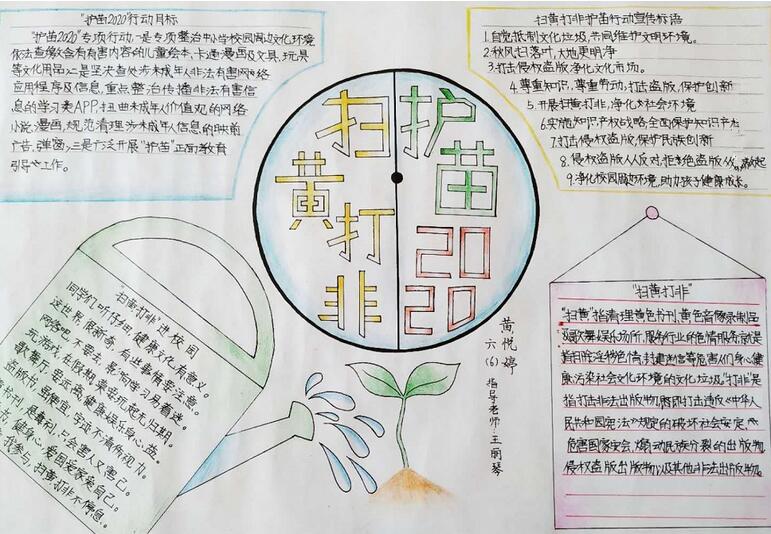 "护苗2020"行动目标
"护苗2020"专项行动,一是专项整治中小学校园周边文化环境
依法查缴含有有害内容的儿童绘本、卡通漫画及文具、玩具
等文化用品;二是坚决查处涉未成年人非法有害网络
应用程序及信息,重点整治传播非法有害信
息的学习类APP、扭曲未成年人价值观的网络
小说、漫画,规范清理涉未成年人信息的映前
广告、弹窗;三是广泛开展"护苗"正面教育
引导工作。
扫黄打非护苗行动宣传标语
1.自觉抵制文化垃圾,共同维护文明环境。
2.秋风扫落叶,大地更明净
3.打击侵权盗版,净化文化市场。
4.尊重知识,尊重劳动,打击盗版,保护创新
5.开展扫黄打非,净化社会环境
6.实施知识产权战略,全面保护知识产权
7.打击侵权盗版,保护民族创新
8.侵权盗版人人反对,拒绝盗版从我做起
9.净化校园周边环境,助力孩子健康成长。
扫黄打非
护苗
2020
黄悦婷
六(6)
指导老师:王丽琴
"扫黄打非"进校园
同学们,听仔细,健康文化有意义。
这世界,很新奇,有些事情要注意。
网吧,不要去,影响学习易着迷。
玩游戏,
歌舞厅,要远离,健康娱乐身心益。
盗版书,虽便宜,字迹不清伤视力。
是毒利,只会害人又害己。
健身心,爱国爱家爱自己。
我参与,扫黄打非不停息。
"扫黄打非"
"扫黄"指清理黄色书刊、黄色音像录制品
及歌舞娱乐场所,服务行业的色情服务,就是
指扫除淫秽色情、封建迷信等危害人们身心健
康、污染社会文化环境的文化垃圾。"打非"是
指打击非法出版物,即打击违反《中华人
民共和国宪法》规定的破坏社会安定、
危害国家安全、煽动民族分裂的出版物,
侵权盗版出版物以及其他非法出版物。